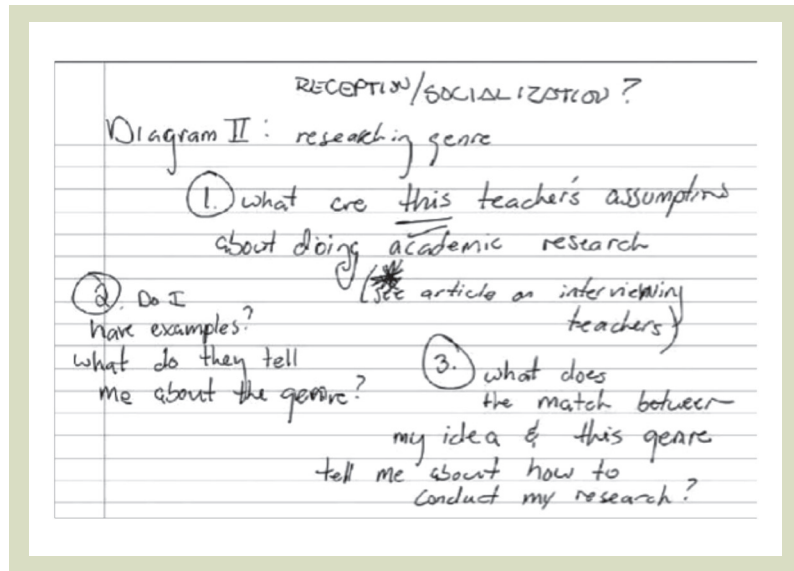 RECEPTION/SOCIALIZATION?
Diagram II: researching genre
1. what are this teacher's assumptions
about doing academic research
(see article on interviewing
teachers)
2. Do I
have examples?
what do they tell
me about the genre?
3. what does
the match between
my idea & this genre
tell me about how to
conduct my research?